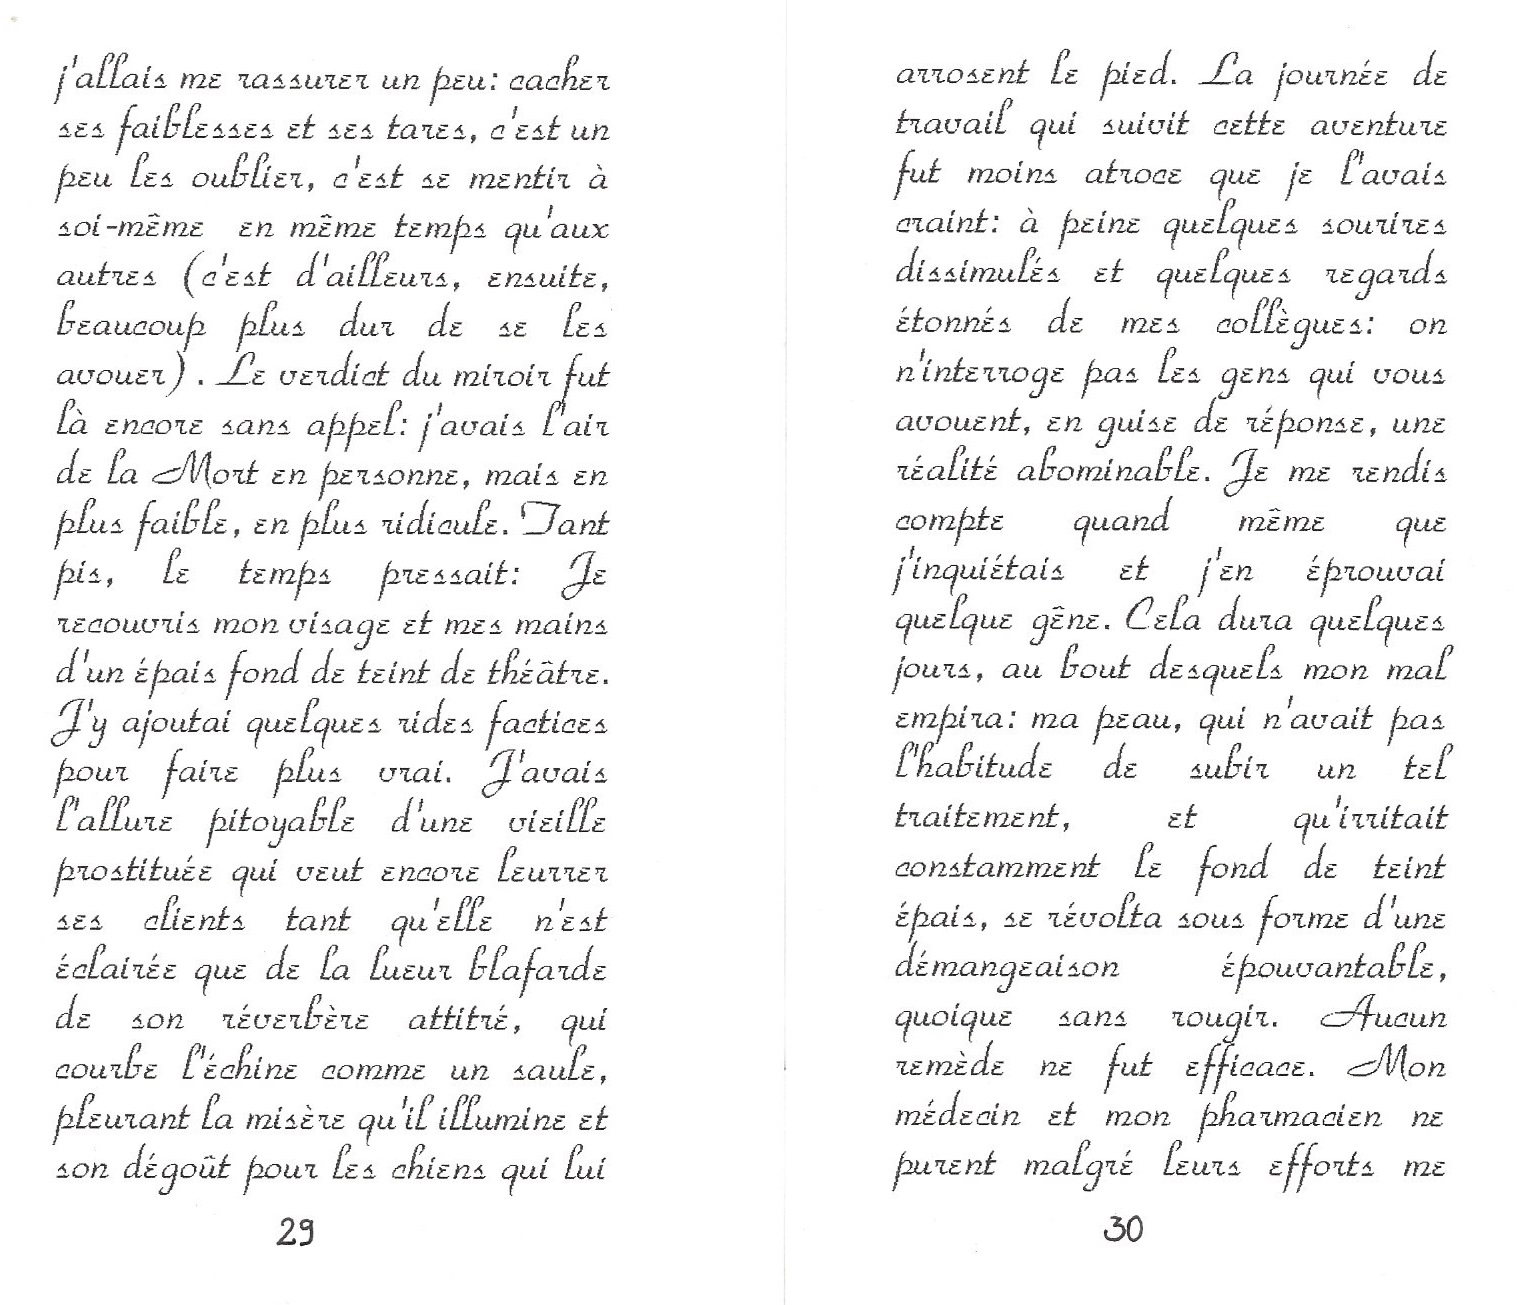 j'allais me rassurer un peu: cacher
ses faiblesses et ses tares, c'est un
peu les oublier, c'est se mentir à
soi-même en même temps qu'aux
autres (c'est d'ailleurs, ensuite,
beaucoup plus dur de se les
avouer) . Le verdict du miroir fut
là encore sans appel: j'avais l'air
de la Mort en personne, mais en
plus faible, en plus ridicule. Tant
pis, le temps pressait: Je
recouvris mon visage et mes mains
d'un épais fond de teint de théâtre.
J'y ajoutai quelques rides factices
pour faire plus vrai. J'avais
l'allure pitoyable d'une vieille
prostituée qui veut encore leurrer
ses clients tant qu'elle n'est
éclairée que de la lueur blafarde
de son réverbère attitré, qui
courbe l'échine comme un saule,
pleurant la misère qu'il illumine et
son dégoût pour les chiens qui lui
29
arrosent le pied. La journée de
travail qui suivit cette aventure
fut moins atroce que je l'avais
craint: à peine quelques sourires
dissimulés et quelques regards
étonnés de mes collègues: on
n'interroge pas les gens qui vous
avouent, en guise de réponse, une
réalité abominable. Je me rendis
compte quand même que
j'inquiétais et j'en éprouvai
quelque gêne. Cela dura quelques
jours, au bout desquels mon mal
empira: ma peau, qui n'avait pas
l'habitude de subir un tel
traitement, et qu'irritait
constamment le fond de teint
épais, se révolta sous forme d'une
démangeaison épouvantable,
quoique sans rougir. Aucun
remède ne fut efficace. Mon
médecin et mon pharmacien ne
purent malgré leurs efforts me
30